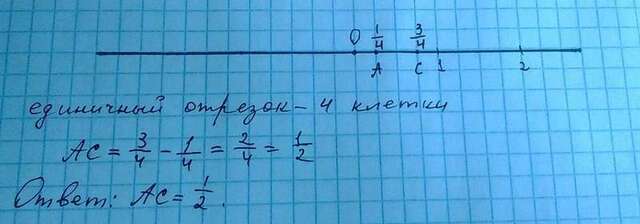 0 1/4 3/4
A C 1 2
единичный отрезок - 4 клетки
AC = 3/4 - 1/4 = 2/4 = 1/2
Ответ: AC = 1/2.